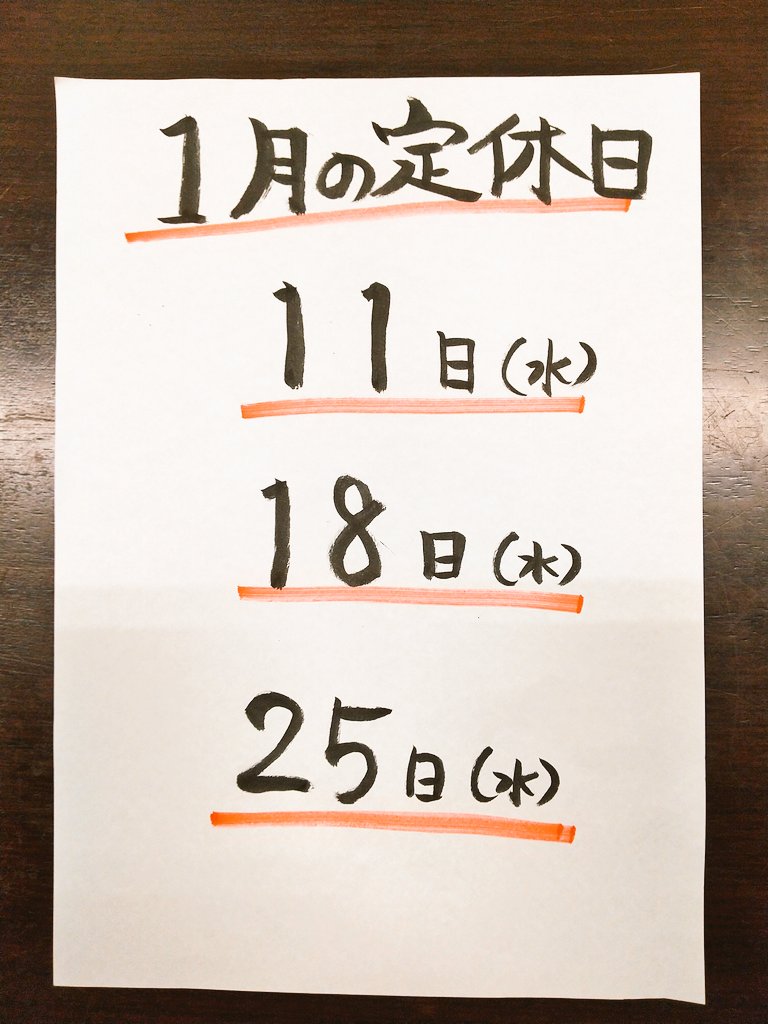 1月の定休日
11日(水)
18日(水)
25日(水)